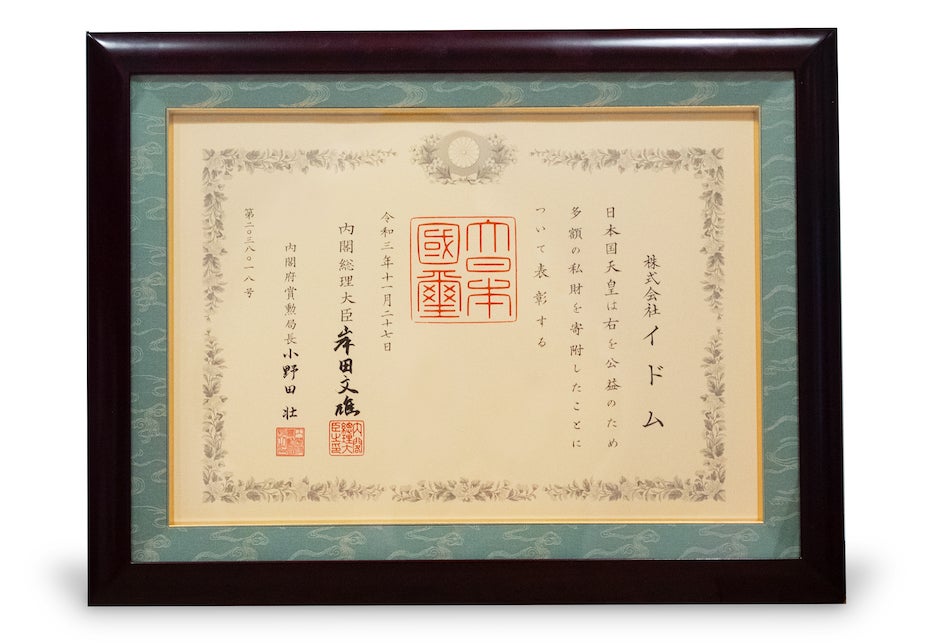 株式会社イドム
日本国天皇は右を公益のため
多額の私財を寄附したことに
ついて表彰する
大日本
國璽
令和三年十一月二十七日
内閣総理大臣岸田文雄
内閣総理大臣之印
内閣府賞勲局長小野田壮
第二〇三八〇一八号